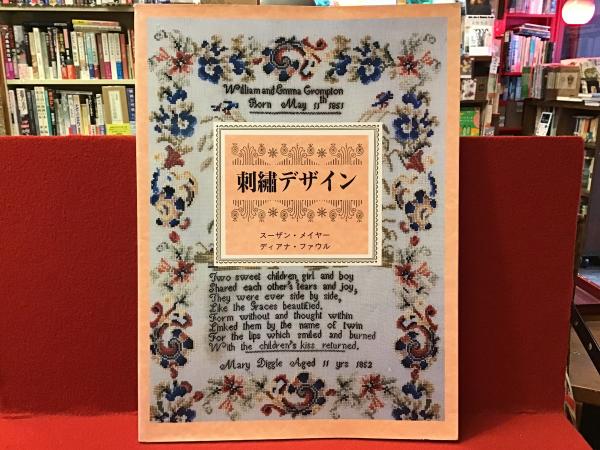 William and Emma Crompton
Born May 11th 1851
刺繡デザイン
スーザン・メイヤー
ディアナ・ファウル
Two sweet children, girl and boy
Shared each other's tears and joy,
They were ever side by side,
Like the Graces beautified.
Form without and thought within
Linked them by the name of twin
For the lips which smiled and burned
With the children's kiss returned.
Mary Diggle Aged 11 yrs 1852